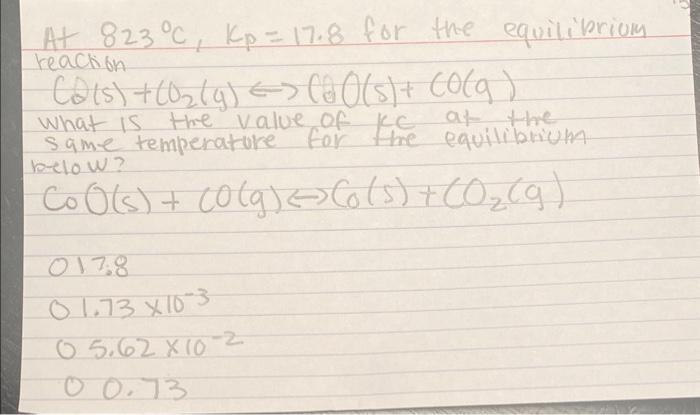 At 823°C, Kp = 17.8 for the equilibrium
reaction
Co(s) + CO2(g) <-> CoO(s) + CO(g)
what is the value of Kc at the
same temperature for the equilibrium
below?
CoO(s) + CO(g) <-> Co(s) + CO2(g)
O 17.8
O 1.73 x 10^-3
O 5.62 x 10^-2
O 0.73